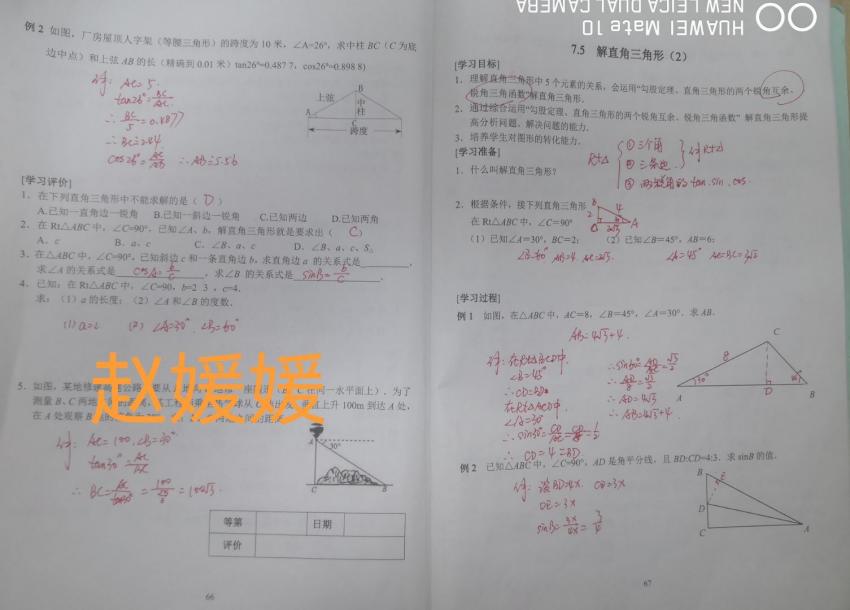 HUAWEI Mate 10
NEW LEICA DUAL CAMERA
例 2 如图，厂房屋顶人字架（等腰三角形）的跨度为 10 米，∠A=26°，求中柱 BC（C 为底
边中点）和上弦 AB 的长（精确到 0.01 米）tan26°=0.487 7，cos26°=0.898 8)
解：AC=5.
tan26°=BC/AC
∴BC/5=0.4877
∴BC≈2.44
cos26°=AC/AB ∴AB≈5.56
上弦
B
中
柱
A
C
跨度
[学习评价]
1．在下列直角三角形中不能求解的是（ D ）
A.已知一直角边一锐角 B.已知一斜边一锐角 C.已知两边 D.已知两角
2．在 Rt△ABC 中，∠C=90°，已知∠A、b，解直角三角形就是要求出（ C ）
A．c B．a、c C．∠B、a、c D．∠B、a、c、S△
3．在△ABC 中，∠C=90°，已知斜边 c 和一条直角边 b，求直角边 a 的关系式是
求∠A 的关系式是 cosA=b/c ，求∠B 的关系式是 sinB=b/c ．
4．已知：在 Rt△ABC 中，∠C=90，b=2 3 ，c=4．
求：（1）a 的长度；（2）∠A 和∠B 的度数．
(2) ∠A=30° ∠B=60°
赵媛媛
5．如图，某地修
测量 B、C 两地
上升 100m 到达 A 处，
在 A 处观察 B
解：AC=100，∠B=30°
tan30°=AC/BC
=100√3.
A
30°
C
B
等第
日期
评价
66
7.5 解直角三角形（2）
[学习目标]
1．理解直角三角形中 5 个元素的关系，会运用“勾股定理、直角三角形的两个锐角互余、
锐角三角函数”解直角三角形．
2．通过综合运用“勾股定理、直角三角形的两个锐角互余、锐角三角函数”解直角三角形提
高分析问题、解决问题的能力．
3．培养学生对图形的转化能力．
[学习准备]
1．什么叫解直角三角形？
Rt△
①三个角
②三条边
tan.sin.cos.
2．根据条件，接下列直角三角形
在 Rt△ABC 中，∠C=90°
（1）已知∠A=30°，BC=2； （2）已知∠B=45°，AB=6；
∠B=60° AB=4 AC=2√3. ∠A=45° AC=BC=3√2
[学习过程]
例 1 如图，在△ABC 中，AC＝8，∠B＝45°，∠A＝30°．求 AB．
AB=4√3+4.
解：在Rt△BCD中.
∠B=45°
∴CD=BD
在Rt△ACD中.
∠A=30°
∴CD=4=BD
∴AD=4√3
∴AB=4√3+4.
C
8
30°
A
D
B
例 2 已知△ABC 中，∠C=90°，AD 是角平分线，且 BD:CD=4:3．求 sinB 的值．
解：设BD=4x. CD=3x
DE=3x
sinB=3x/4x=3/4
B
E
D
C
A
67